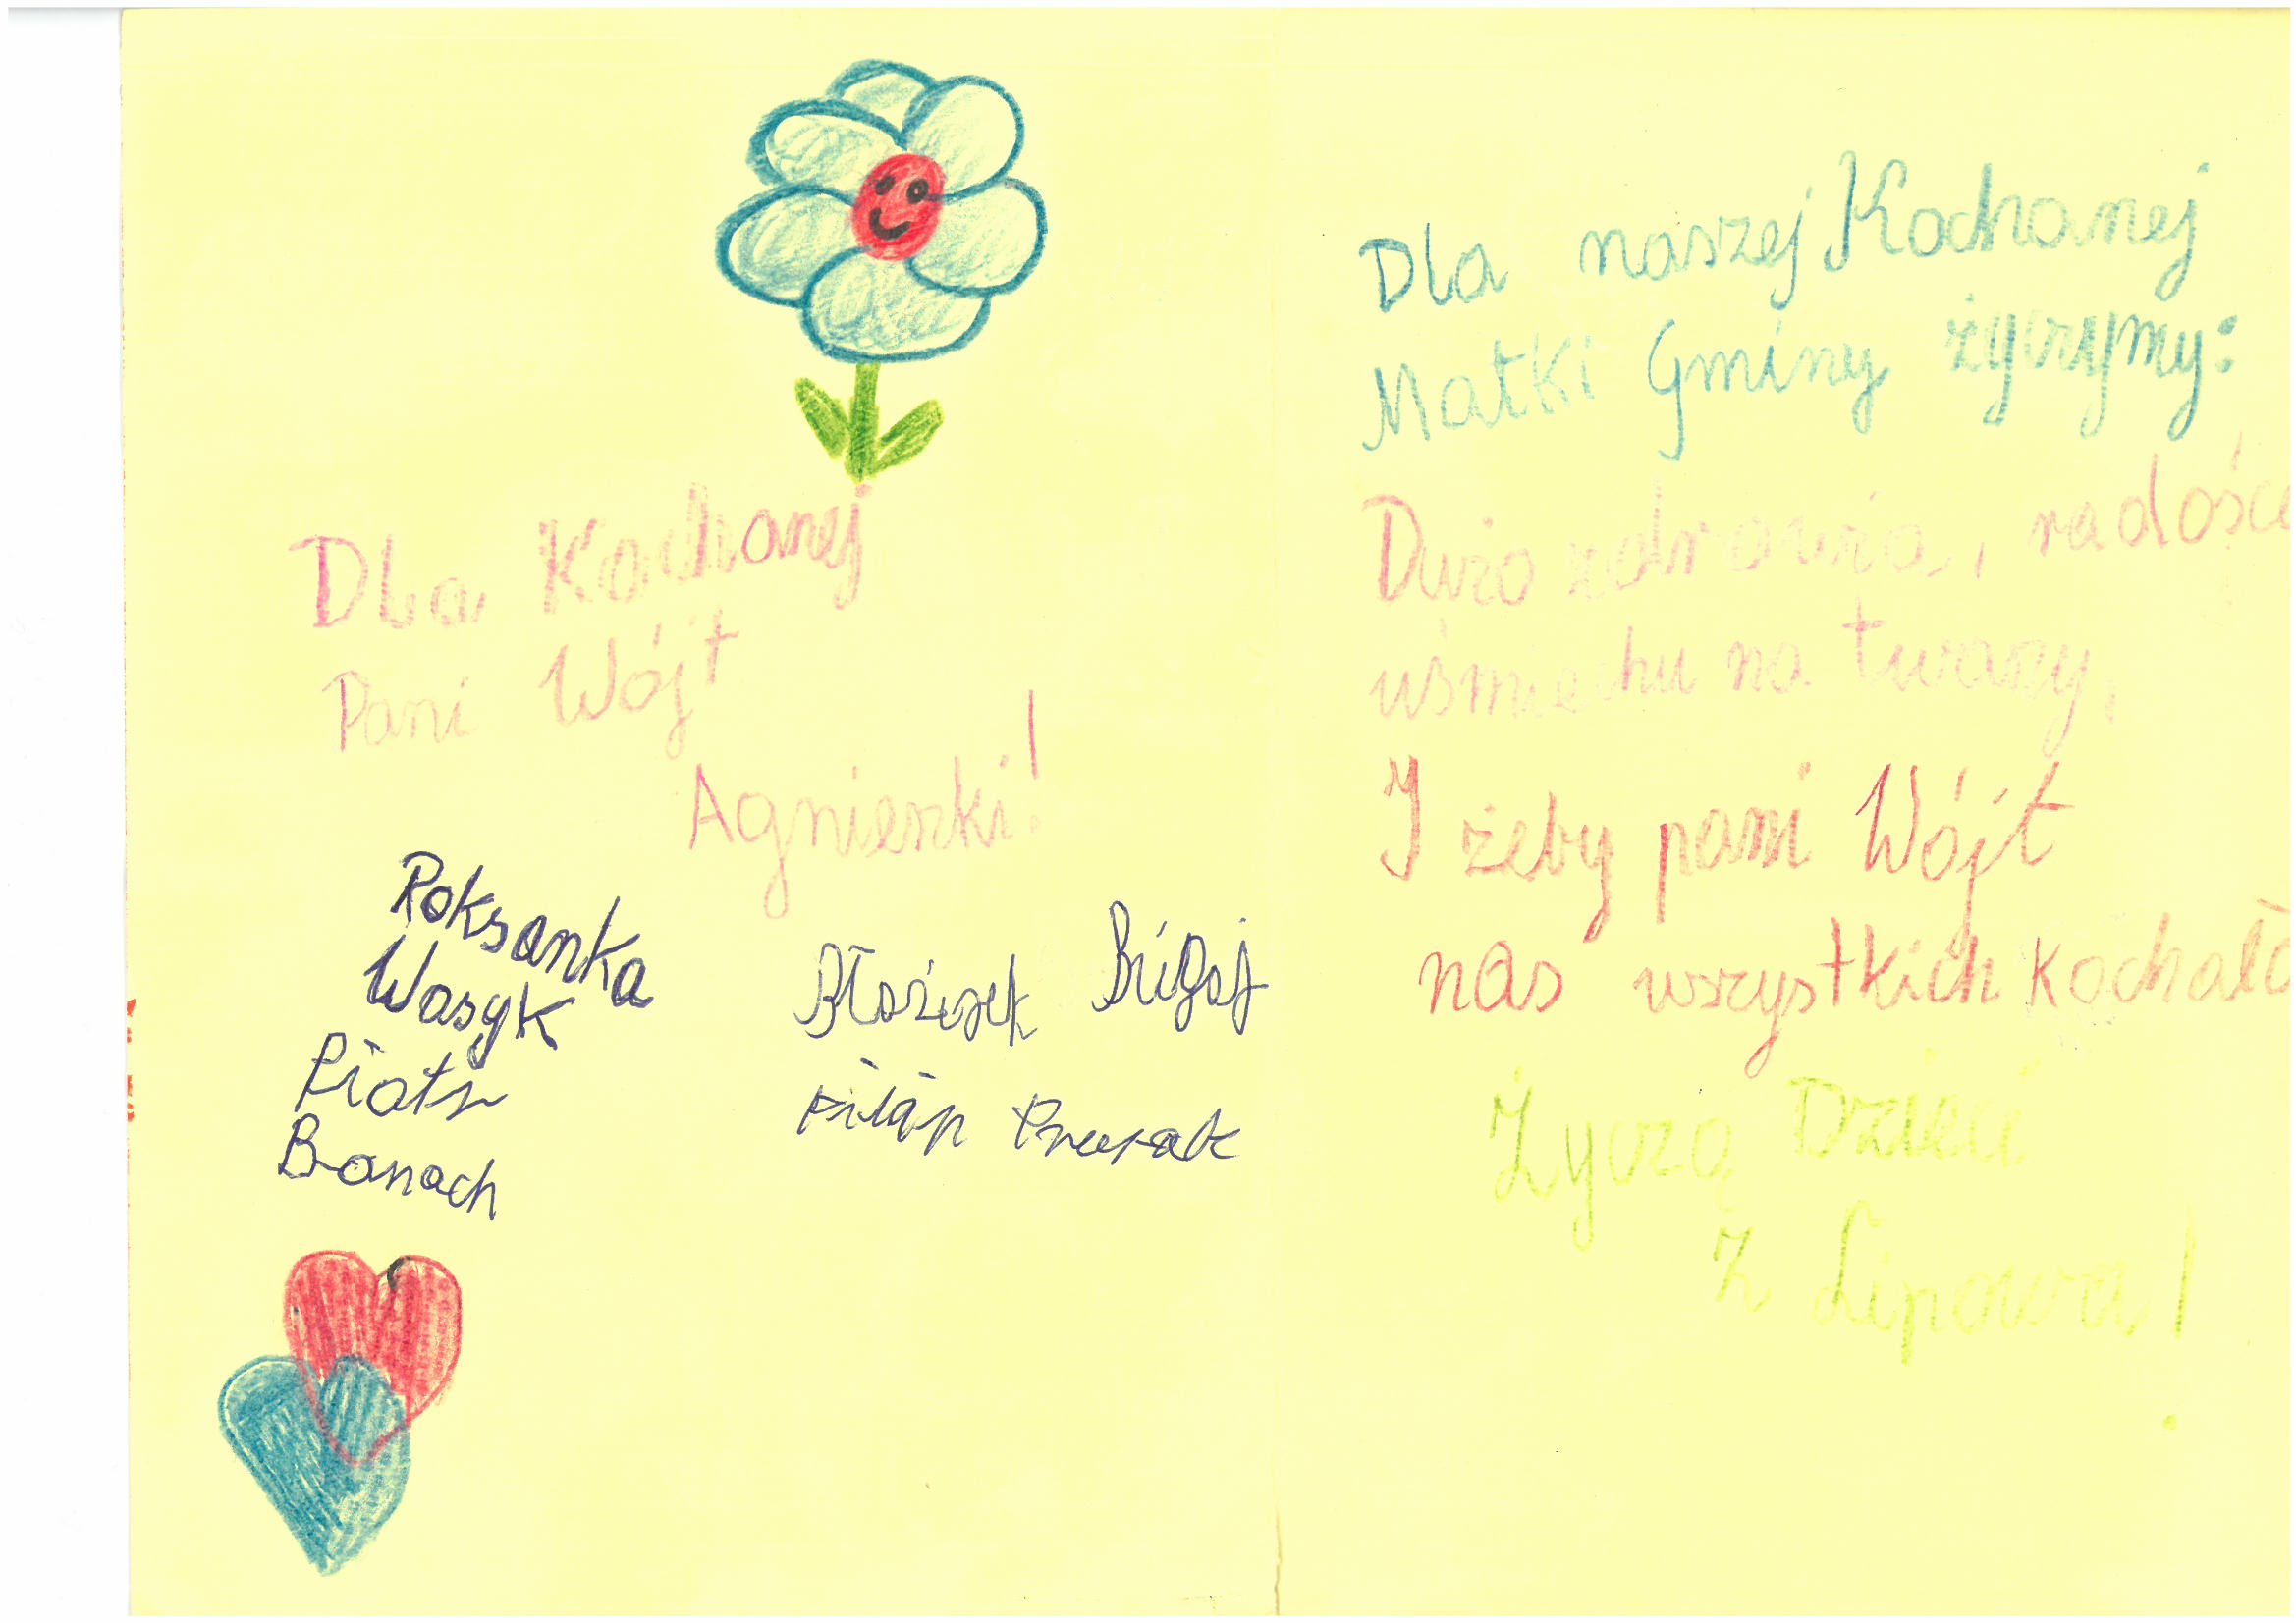 Dla Kochanej
Pani Wójt
Agnieszki!
Roksanka
Wasyk
Piotr
Banach
Błażejek
Filip
Dla naszej Kochanej
Matki Gminy życzymy:
Dużo zdrowia, radośc
uśmiechu na twarzy,
I żeby pani Wójt
nas wszystkich kochała
Życzą Dzieci
Z Lipowa!